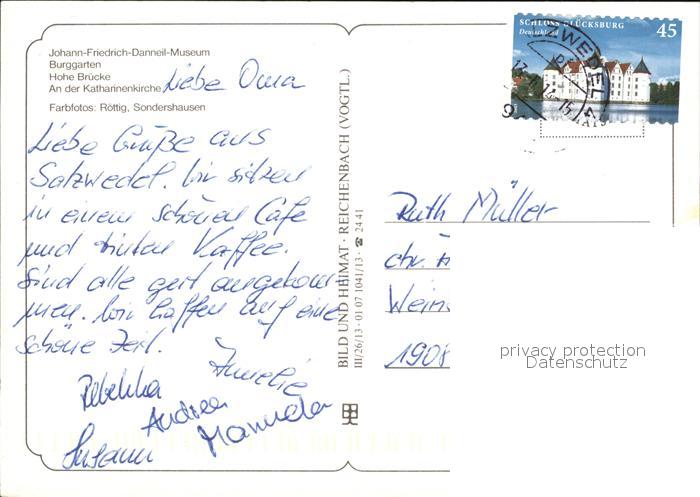 Johann-Friedrich-Danneil-Museum
Burggarten
Hohe Brücke
An der Katharinenkirche
Farbfotos: Röttig, Sondershausen
Liebe Oma
Liebe Grüße aus
Salzwedel. Wir sitzen
in einem schönen Cafe
und trinken Kaffee.
Sind alle gut angekom-
men. Wir hoffen auf eine
schöne Zeit.
Amelie
Rebekka
Andrea
Manuela
Susann
BILD UND HEIMAT · REICHENBACH (VOGTL.)
III/26/13 · 01 07 1041/13 · ☎ 24 41
SCHLOSS GLÜCKSBURG
Deutschland
45
ZWEDEL
Ruth Müller
chr.
Wein
1908
privacy protection
Datenschutz